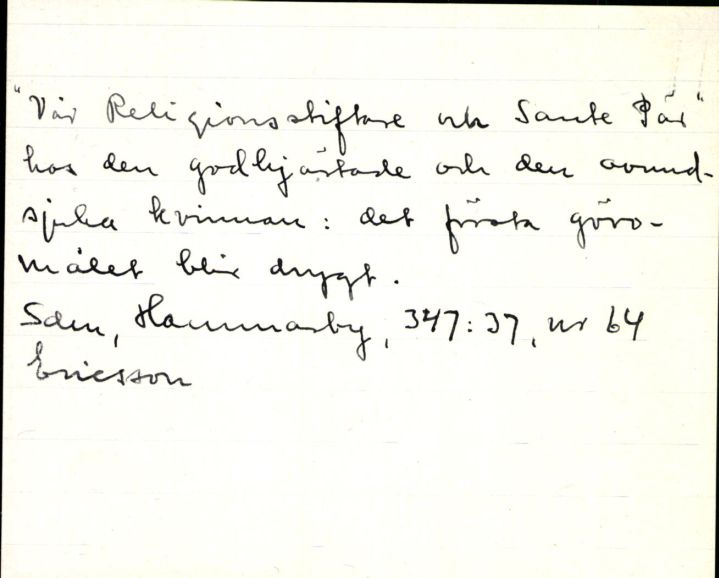 "Vår Religionsstiftare och Sante Pär"
hos den godhjärtade och den avund-
sjuka kvinnan: det första göro-
målet blir drygt.
Sdm, Hammarby, 347:37, nr 64
Ericsson